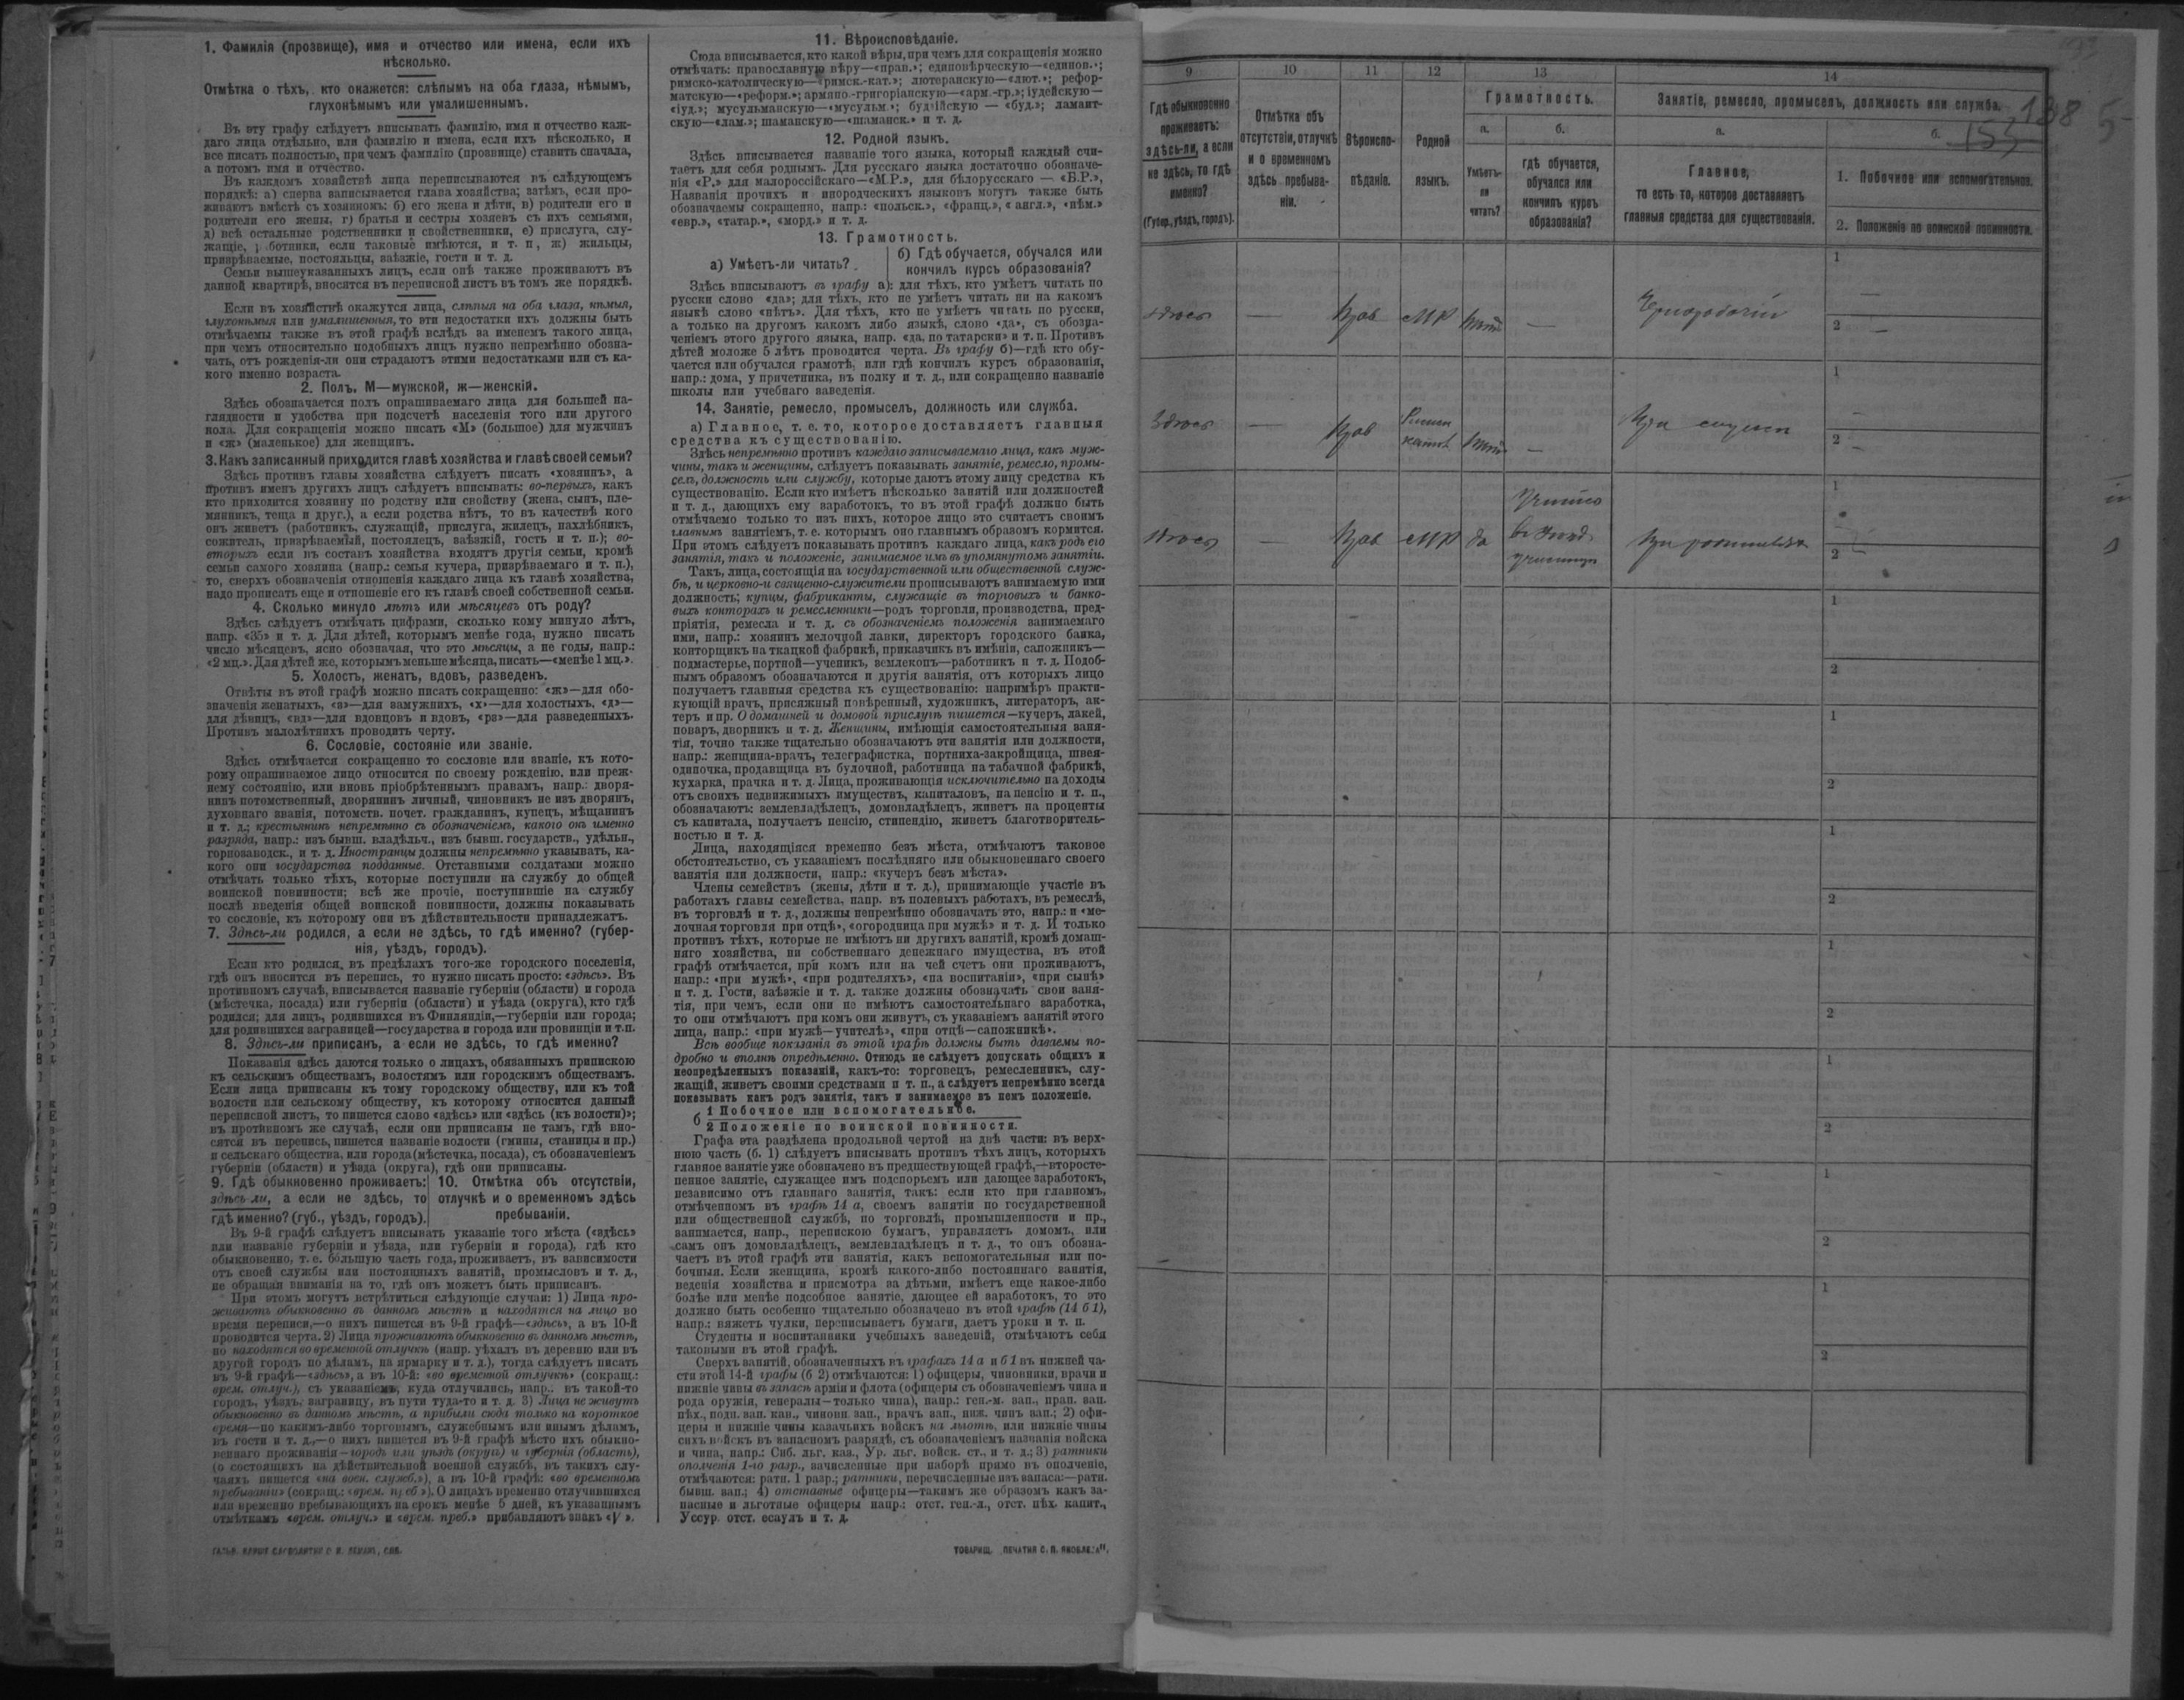 1. Фамилія (прозвище), имя и отчество или имена, если ихъ
нѣсколько.
Отмѣтка о тѣхъ, кто окажется: слѣпымъ на оба глаза, нѣмымъ,
глухонѣмымъ или умалишеннымъ.
Въ эту графу слѣдуетъ вписывать фамилію, имя и отчество каж-
даго лица отдѣльно, или фамилію и имена, если ихъ нѣсколько, и
все писать полностью, при чемъ фамилію (прозвище) ставить сначала,
а потомъ имя и отчество.
Въ каждомъ хозяйствѣ лица переписываются въ слѣдующемъ
порядкѣ: а) сперва записывается глава хозяйства; затѣмъ, если про-
живаютъ вмѣстѣ съ хозяиномъ: б) его жена и дѣти, в) родители его и
родители его жены, г) братья и сестры хозяевъ съ ихъ семьями,
д) всѣ остальные родственники и свойственники, е) прислуга, слу-
жащіе, работники, если таковые имѣются, и т. п, ж) жильцы,
призрѣваемые, постояльцы, заѣзжіе, гости и т. д.
Семьи вышеуказанныхъ лицъ, если онѣ также проживаютъ въ
данной квартирѣ, вносятся въ переписной листъ въ томъ же порядкѣ.
Если въ хозяйствѣ окажутся лица, слѣпыя на оба глаза, нѣмыя,
глухонѣмыя или умалишенныя, то эти недостатки ихъ должны быть
отмѣчаемы также въ этой графѣ вслѣдъ за именемъ такого лица,
при чемъ относительно подобныхъ лицъ нужно непремѣнно обозна-
чать, отъ рожденія-ли они страдаютъ этими недостатками или съ ка-
кого именно возраста.
2. Полъ. М—мужской, ж—женскій.
Здѣсь обозначается полъ опрашиваемаго лица для большей на-
глядности и удобства при подсчетѣ населенія того или другого
пола. Для сокращенія можно писать «М» (большое) для мужчинъ
и «ж» (маленькое) для женщинъ.
3. Какъ записанный приходится главѣ хозяйства и главѣ своей семьи?
Здѣсь противъ главы хозяйства слѣдуетъ писать «хозяинъ», а
противъ именъ другихъ лицъ слѣдуетъ вписывать: во-первыхъ, какъ
кто приходится хозяину по родству или свойству (жена, сынъ, пле-
мянникъ, теща и друг.), а если родства нѣтъ, то въ качествѣ кого
онъ живетъ (работникъ, служащій, прислуга, жилецъ, нахлѣбникъ,
сожитель, призрѣваемый, постоялецъ, заѣзжій, гость и т. п.); во-
вторыхъ если въ составъ хозяйства входятъ другія семьи, кромѣ
семьи самого хозяина (напр.: семья кучера, призрѣваемаго и т. п.),
то, сверхъ обозначенія отношенія каждаго лица къ главѣ хозяйства,
надо прописать еще и отношеніе его къ главѣ своей собственной семьи.
4. Сколько минуло лѣтъ или мѣсяцевъ отъ роду?
Здѣсь слѣдуетъ отмѣчать цифрами, сколько кому минуло лѣтъ,
напр. «35» и т. д. Для дѣтей, которымъ менѣе года, нужно писать
число мѣсяцевъ, ясно обозначая, что это мѣсяцы, а не годы, напр.:
«2 мц.». Для дѣтей же, которымъ меньше мѣсяца, писать—«менѣе 1 мц.».
5. Холостъ, женатъ, вдовъ, разведенъ.
Отвѣты въ этой графѣ можно писать сокращенно: «ж»—для обо-
значенія женатыхъ, «з»—для замужнихъ, «х»—для холостыхъ, «д»—
для дѣвицъ, «вд»—для вдовцовъ и вдовъ, «рз»—для разведенныхъ.
Противъ малолѣтнихъ проводить черту.
6. Сословіе, состояніе или званіе.
Здѣсь отмѣчается сокращенно то сословіе или званіе, къ кото-
рому опрашиваемое лицо относится по своему рожденію, или преж-
нему состоянію, или вновь пріобрѣтеннымъ правамъ, напр.: дворя-
нинъ потомственный, дворянинъ личный, чиновникъ не изъ дворянъ,
духовнаго званія, потомств. почет. гражданинъ, купецъ, мѣщанинъ
и т. д.; крестьянинъ непремѣнно съ обозначеніемъ, какого онъ именно
разряда, напр.: изъ бывш. владѣльч., изъ бывш. государств., удѣльн.,
горнозаводск., и т. д. Иностранцы должны непремѣнно указывать, ка-
кого они государства подданные. Отставными солдатами можно
отмѣчать только тѣхъ, которые поступили на службу до общей
воинской повинности; всѣ же прочіе, поступившіе на службу
послѣ введенія общей воинской повинности, должны показывать
то сословіе, къ которому они въ дѣйствительности принадлежатъ.
7. Здѣсь-ли родился, а если не здѣсь, то гдѣ именно? (губер-
нія, уѣздъ, городъ).
Если кто родился, въ предѣлахъ того-же городского поселенія,
гдѣ онъ вносится въ перепись, то нужно писать просто: «здѣсь». Въ
противномъ случаѣ, вписывается названіе губерніи (области) и города
(мѣстечка, посада) или губерніи (области) и уѣзда (округа), кто гдѣ
родился; для лицъ, родившихся въ Финляндіи,—губерніи или города;
для родившихся заграницей—государства и города или провинціи и т.п.
8. Здѣсь-ли приписанъ, а если не здѣсь, то гдѣ именно?
Показанія здѣсь даются только о лицахъ, обязанныхъ припискою
къ сельскимъ обществамъ, волостямъ или городскимъ обществамъ.
Если лица приписаны къ тому городскому обществу, или къ той
волости или сельскому обществу, къ которому относится данный
переписной листъ, то пишется слово «здѣсь» или «здѣсь (къ волости)»;
въ противномъ же случаѣ, если они приписаны не тамъ, гдѣ вно-
сятся въ перепись, пишется названіе волости (гмины, станицы и пр.)
и сельскаго общества, или города (мѣстечка, посада), съ обозначеніемъ
губерніи (области) и уѣзда (округа), гдѣ они приписаны.
9. Гдѣ обыкновенно проживаетъ:
здѣсь ли, а если не здѣсь, то
гдѣ именно? (губ., уѣздъ, городъ).
10. Отмѣтка объ отсутствіи,
отлучкѣ и о временномъ здѣсь
пребываніи.
Въ 9-й графѣ слѣдуетъ вписывать указаніе того мѣста («здѣсь»
или названіе губерніи и уѣзда, или губерніи и города), гдѣ кто
обыкновенно, т. е. бо́льшую часть года, проживаетъ, въ зависимости
отъ своей службы или постоянныхъ занятій, промысловъ и т. д.,
не обращая вниманія на то, гдѣ онъ можетъ быть приписанъ.
При этомъ могутъ встрѣтиться слѣдующіе случаи: 1) Лица про-
живаютъ обыкновенно въ данномъ мѣстѣ и находятся на лицо во
время переписи,—о нихъ пишется въ 9-й графѣ—«здѣсь», а въ 10-й
проводится черта. 2) Лица проживаютъ обыкновенно въ данномъ мѣстѣ,
но находятся во временной отлучкѣ (напр. уѣхалъ въ деревню или въ
другой городъ по дѣламъ, на ярмарку и т. д.), тогда слѣдуетъ писать
въ 9-й графѣ—«здѣсь», а въ 10-й: «во временной отлучкѣ» (сокращ.:
врем. отлуч.), съ указаніемъ, куда отлучились, напр.: въ такой-то
городъ, уѣздъ, заграницу, въ пути туда-то и т. д. 3) Лица не живутъ
обыкновенно въ данномъ мѣстѣ, а прибыли сюда только на короткое
время—по какимъ-либо торговымъ, служебнымъ или инымъ дѣламъ,
въ гости и т. д.,—о нихъ пишется въ 9-й графѣ мѣсто ихъ обыкно-
веннаго проживанія—городъ или уѣздъ (округъ) и губернія (область),
(о состоящихъ на дѣйствительной военной службѣ, въ такихъ слу-
чаяхъ пишется «на воен. служб.»), а въ 10-й графѣ: «во временномъ
пребываніи» (сокращ.: «врем. преб.»). О лицахъ временно отлучившихся
или временно пребывающихъ на срокъ менѣе 5 дней, къ указаннымъ
отмѣткамъ «врем. отлуч.» и «врем. преб.» прибавляютъ знакъ «V».
11. Вѣроисповѣданіе.
Сюда вписывается, кто какой вѣры, при чемъ для сокращенія можно
отмѣчать: православную вѣру—«прав.»; единовѣрческую—«единов.»;
римско-католическую—«римск.-кат.»; лютеранскую—«лют.»; рефор-
матскую—«реформ.»; армяно-григоріанскую—«арм.-гр.»; іудейскую—
«іуд.»; мусульманскую—«мусульм.»; буддійскую — «буд.»; ламаит-
скую—«лам.»; шаманскую—«шаманск.» и т. д.
12. Родной языкъ.
Здѣсь вписывается названіе того языка, который каждый счи-
таетъ для себя роднымъ. Для русскаго языка достаточно обозначе-
нія «Р.» для малороссійскаго—«М.Р.», для бѣлорусскаго — «Б.Р.»,
Названія прочихъ и инородческихъ языковъ могутъ также быть
обозначаемы сокращенно, напр.: «польск.», «франц.», «англ.», «нѣм.»
«евр.», «татар.», «морд.» и т. д.
13. Грамотность.
а) Умѣетъ-ли читать?
б) Гдѣ обучается, обучался или
кончилъ курсъ образованія?
Здѣсь вписываютъ въ графу а): для тѣхъ, кто умѣетъ читать по
русски слово «да»; для тѣхъ, кто не умѣетъ читать ни на какомъ
языкѣ слово «нѣтъ». Для тѣхъ, кто не умѣетъ читать по русски,
а только на другомъ какомъ либо языкѣ, слово «да», съ обозна-
ченіемъ этого другого языка, напр. «да, по татарски» и т. п. Противъ
дѣтей моложе 5 лѣтъ проводится черта. Въ графу б)—гдѣ кто обу-
чается или обучался грамотѣ, или гдѣ кончилъ курсъ образованія,
напр.: дома, у причетника, въ полку и т. д., или сокращенно названіе
школы или учебнаго заведенія.
14. Занятіе, ремесло, промыселъ, должность или служба.
а) Главное, т. е. то, которое доставляетъ главныя
средства къ существованію.
Здѣсь непремѣнно противъ каждаго записываемаго лица, какъ муж-
чины, такъ и женщины, слѣдуетъ показывать занятіе, ремесло, промы-
селъ, должность или службу, которые даютъ этому лицу средства къ
существованію. Если кто имѣетъ нѣсколько занятій или должностей
и т. д., дающихъ ему заработокъ, то въ этой графѣ должно быть
отмѣчаемо только то изъ нихъ, которое лицо это считаетъ своимъ
главнымъ занятіемъ, т. е. которымъ оно главнымъ образомъ кормится.
При этомъ слѣдуетъ показывать противъ каждаго лица, какъ родъ его
занятія, такъ и положеніе, занимаемое имъ въ упомянутомъ занятіи.
Такъ, лица, состоящія на государственной или общественной служ-
бѣ, и церковно-и священно-служители прописываютъ занимаемую ими
должность; купцы, фабриканты, служащіе въ торговыхъ и банко-
выхъ конторахъ и ремесленники—родъ торговли, производства, пред-
пріятія, ремесла и т. д. съ обозначеніемъ положенія занимаемаго
ими, напр.: хозяинъ мелочной лавки, директоръ городского банка,
конторщикъ на ткацкой фабрикѣ, приказчикъ въ имѣніи, сапожникъ—
подмастерье, портной—ученикъ, землекопъ—работникъ и т. д. Подоб-
нымъ образомъ обозначаются и другія занятія, отъ которыхъ лицо
получаетъ главныя средства къ существованію: напримѣръ практи-
кующій врачъ, присяжный повѣренный, художникъ, литераторъ, ак-
теръ и пр. О домашней и домовой прислугѣ пишется—кучеръ, лакей,
поваръ, дворникъ и т. д. Женщины, имѣющія самостоятельныя заня-
тія, точно также тщательно обозначаютъ эти занятія или должности,
напр.: женщина-врачъ, телеграфистка, портниха-закройщица, швея-
одиночка, продавщица въ булочной, работница на табачной фабрикѣ,
кухарка, прачка и т. д. Лица, проживающія исключительно на доходы
отъ своихъ недвижимыхъ имуществъ, капиталовъ, на пенсію и т. п.,
обозначаютъ: землевладѣлецъ, домовладѣлецъ, живетъ на проценты
съ капитала, получаетъ пенсію, стипендію, живетъ благотворитель-
ностью и т. д.
Лица, находящіяся временно безъ мѣста, отмѣчаютъ таковое
обстоятельство, съ указаніемъ послѣдняго или обыкновеннаго своего
занятія или должности, напр.: «кучеръ безъ мѣста».
Члены семействъ (жены, дѣти и т. д.), принимающіе участіе въ
работахъ главы семейства, напр. въ полевыхъ работахъ, въ ремеслѣ,
въ торговлѣ и т. д., должны непремѣнно обозначать это, напр.: и «ме-
лочная торговля при отцѣ», «огородница при мужѣ» и т. д. И только
противъ тѣхъ, которые не имѣютъ ни другихъ занятій, кромѣ домаш-
няго хозяйства, ни собственнаго денежнаго имущества, въ этой
графѣ отмѣчается, при комъ или на чей счетъ они проживаютъ,
напр.: «при мужѣ», «при родителяхъ», «на воспитаніи», «при сынѣ»
и т. д. Гости, заѣзжіе и т. д. также должны обозначать свои заня-
тія, при чемъ, если они не имѣютъ самостоятельнаго заработка,
то они отмѣчаютъ при комъ они живутъ, съ указаніемъ занятій этого
лица, напр.: «при мужѣ—учителѣ», «при отцѣ—сапожникѣ».
Всѣ вообще показанія въ этой графѣ должны быть даваемы по-
дробно и вполнѣ опредѣленно. Отнюдь не слѣдуетъ допускать общихъ и
неопредѣленныхъ показаній, какъ-то: торговецъ, ремесленникъ, слу-
жащій, живетъ своими средствами и т. п., а слѣдуетъ непремѣнно всегда
показывать какъ родъ занятія, такъ и занимаемое въ немъ положеніе.
б
1 Побочное или вспомогательное.
2 Положеніе по воинской повинности.
Графа эта раздѣлена продольной чертой на двѣ части: въ верх-
нюю часть (б. 1) слѣдуетъ вписывать противъ тѣхъ лицъ, которыхъ
главное занятіе уже обозначено въ предшествующей графѣ,—второсте-
пенное занятіе, служащее имъ подспорьемъ или дающее заработокъ,
независимо отъ главнаго занятія, такъ: если кто при главномъ,
отмѣченномъ въ графѣ 14 а, своемъ занятіи по государственной
или общественной службѣ, по торговлѣ, промышленности и пр.,
занимается, напр., перепискою бумагъ, управляетъ домомъ, или
самъ онъ домовладѣлецъ, землевладѣлецъ и т. д., то онъ обозна-
чаетъ въ этой графѣ эти занятія, какъ вспомогательныя или по-
бочныя. Если женщина, кромѣ какого-либо постояннаго занятія,
веденія хозяйства и присмотра за дѣтьми, имѣетъ еще какое-либо
болѣе или менѣе подсобное занятіе, дающее ей заработокъ, то это
должно быть особенно тщательно обозначено въ этой графѣ (14 б 1),
напр.: вяжетъ чулки, переписываетъ бумаги, даетъ уроки и т. п.
Студенты и воспитанники учебныхъ заведеній, отмѣчаютъ себя
таковыми въ этой графѣ.
Сверхъ занятій, обозначенныхъ въ графахъ 14 а и б 1 въ нижней ча-
сти этой 14-й графы (б 2) отмѣчаются: 1) офицеры, чиновники, врачи и
нижніе чины въ запасѣ арміи и флота (офицеры съ обозначеніемъ чина и
рода оружія, генералы—только чина), напр.: ген.-м. зап., прап. зап.
пѣх., подп. зап. кав., чиновн. зап., врачъ зап., ниж. чинъ зап.; 2) офи-
церы и нижніе чины казачьихъ войскъ на льготѣ, или нижніе чины
сихъ войскъ въ запасномъ разрядѣ, съ обозначеніемъ названія войска
и чина, напр.: Сиб. льг. каз., Ур. льг. войск. ст., и т. д.; 3) ратники
ополченія 1-го разр., зачисленные при наборѣ прямо въ ополченіе,
отмѣчаются: ратн. 1 разр.; ратники, перечисленные изъ запаса:—ратн.
бывш. зап.; 4) отставные офицеры—такимъ же образомъ какъ за-
пасные и льготные офицеры напр.: отст. ген.-л., отст. пѣх. капит.,
Уссур. отст. есаулъ и т. д.
9
10
11
12
13
14
Гдѣ обыкновенно
проживаетъ:
здѣсь-ли, а если
не здѣсь, то гдѣ
именно?
(Губер., уѣздъ, городъ).
Отмѣтка объ
отсутствіи, отлучкѣ
и о временномъ
здѣсь пребыва-
ніи.
Вѣроиспо-
вѣданіе.
Родной
языкъ.
Грамотность.
а.
Умѣетъ-
ли
читать?
б.
гдѣ обучается,
обучался или
кончилъ курсъ
образованія?
Занятіе, ремесло, промыселъ, должность или служба.
а.
Главное,
то есть то, которое доставляетъ
главныя средства для существованія.
б.
1. Побочное или вспомогательное.
2. Положеніе по воинской повинности.
138
153
5
здѣсь — Прав МР нѣтъ — Чернорабочій
1 —
2 —
Здѣсь — Прав нѣтъ —
1 —
2 —
здѣсь — Прав МР да
1
2
1
2
1
2
1
2
1
2
1
2
1
2
1
2